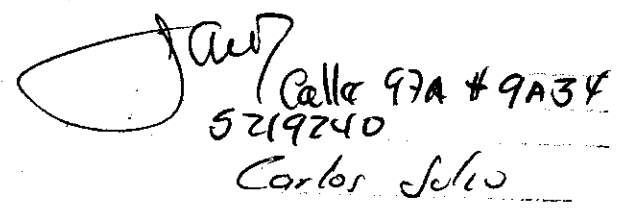 Calle 97A # 9A34
5219240
Carlos Julio